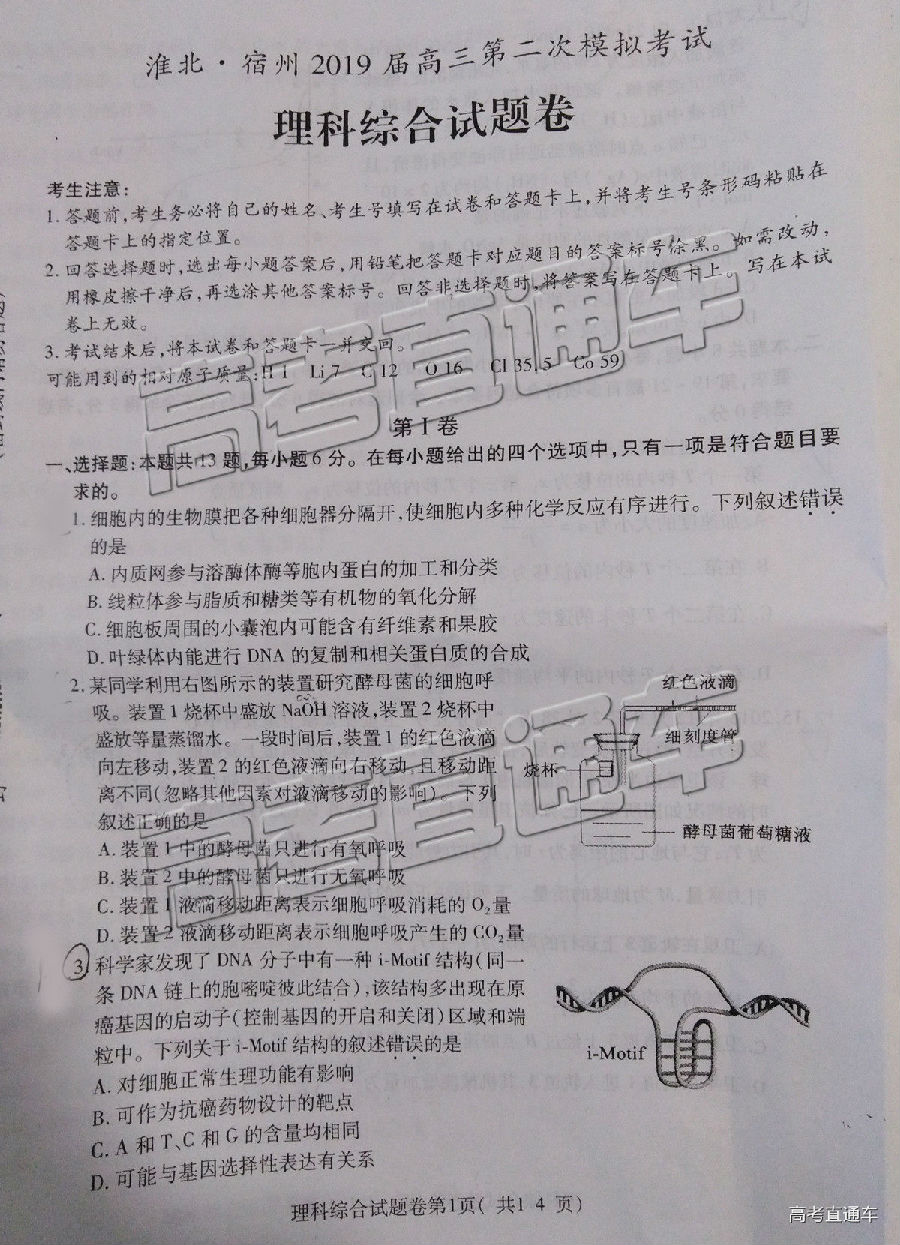 淮北·宿州2019届高三第二次模拟考试
理科综合试题卷
考生注意:
1.答题前,考生务必将自己的姓名、考生号填写在试卷和答题卡上,并将考生号条形码粘贴在
答题卡上的指定位置。
2.回答选择题时,选出每小题答案后,用铅笔把答题卡对应题目的答案标号涂黑。如需改动,
用橡皮擦干净后,再选涂其他答案标号。回答非选择题时,将答案写在答题卡上。写在本试
卷上无效。
3.考试结束后,将本试卷和答题卡一并交回。
可能用到的相对原子质量:H 1 Li 7 C 12 O 16 Cl 35.5 Co 59
第Ⅰ卷
一、选择题:本题共13题,每小题6分。在每小题给出的四个选项中,只有一项是符合题目要
求的。
1.细胞内的生物膜把各种细胞器分隔开,使细胞内多种化学反应有序进行。下列叙述错误
的是
A.内质网参与溶酶体酶等胞内蛋白的加工和分类
B.线粒体参与脂质和糖类等有机物的氧化分解
C.细胞板周围的小囊泡内可能含有纤维素和果胶
D.叶绿体内能进行DNA的复制和相关蛋白质的合成
2.某同学利用右图所示的装置研究酵母菌的细胞呼
吸。装置1烧杯中盛放NaOH溶液,装置2烧杯中
盛放等量蒸馏水。一段时间后,装置1的红色液滴
向左移动,装置2的红色液滴向右移动,且移动距
离不同(忽略其他因素对液滴移动的影响)。下列
叙述正确的是
A.装置1中的酵母菌只进行有氧呼吸
B.装置2中的酵母菌只进行无氧呼吸
C.装置1液滴移动距离表示细胞呼吸消耗的O₂量
D.装置2液滴移动距离表示细胞呼吸产生的CO₂量
红色液滴
细刻度管
烧杯
酵母菌葡萄糖液
3 科学家发现了DNA分子中有一种i-Motif结构(同一
条DNA链上的胞嘧啶彼此结合),该结构多出现在原
癌基因的启动子(控制基因的开启和关闭)区域和端
粒中。下列关于i-Motif结构的叙述错误的是
A.对细胞正常生理功能有影响
B.可作为抗癌药物设计的靶点
C.A和T、C和G的含量均相同
D.可能与基因选择性表达有关系
i-Motif
理科综合试题卷第1页( 共1 4 页)
高考直通车
高考直通车
高考直通车